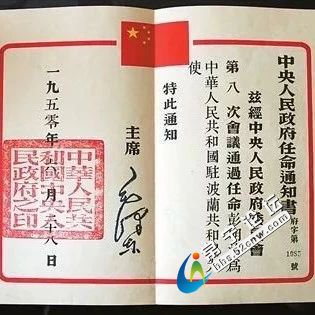 中央人民政府任命通知書
府字第1085號
茲經中央人民政府委員會
第八次會議通過任命彭明治為
中華人民共和國駐波蘭共和國大
使
特此通知
主席
毛澤東
一九五〇年六月二十八日
中華人民共
和國中央人
民政府之印
bbs.b2cnw.com